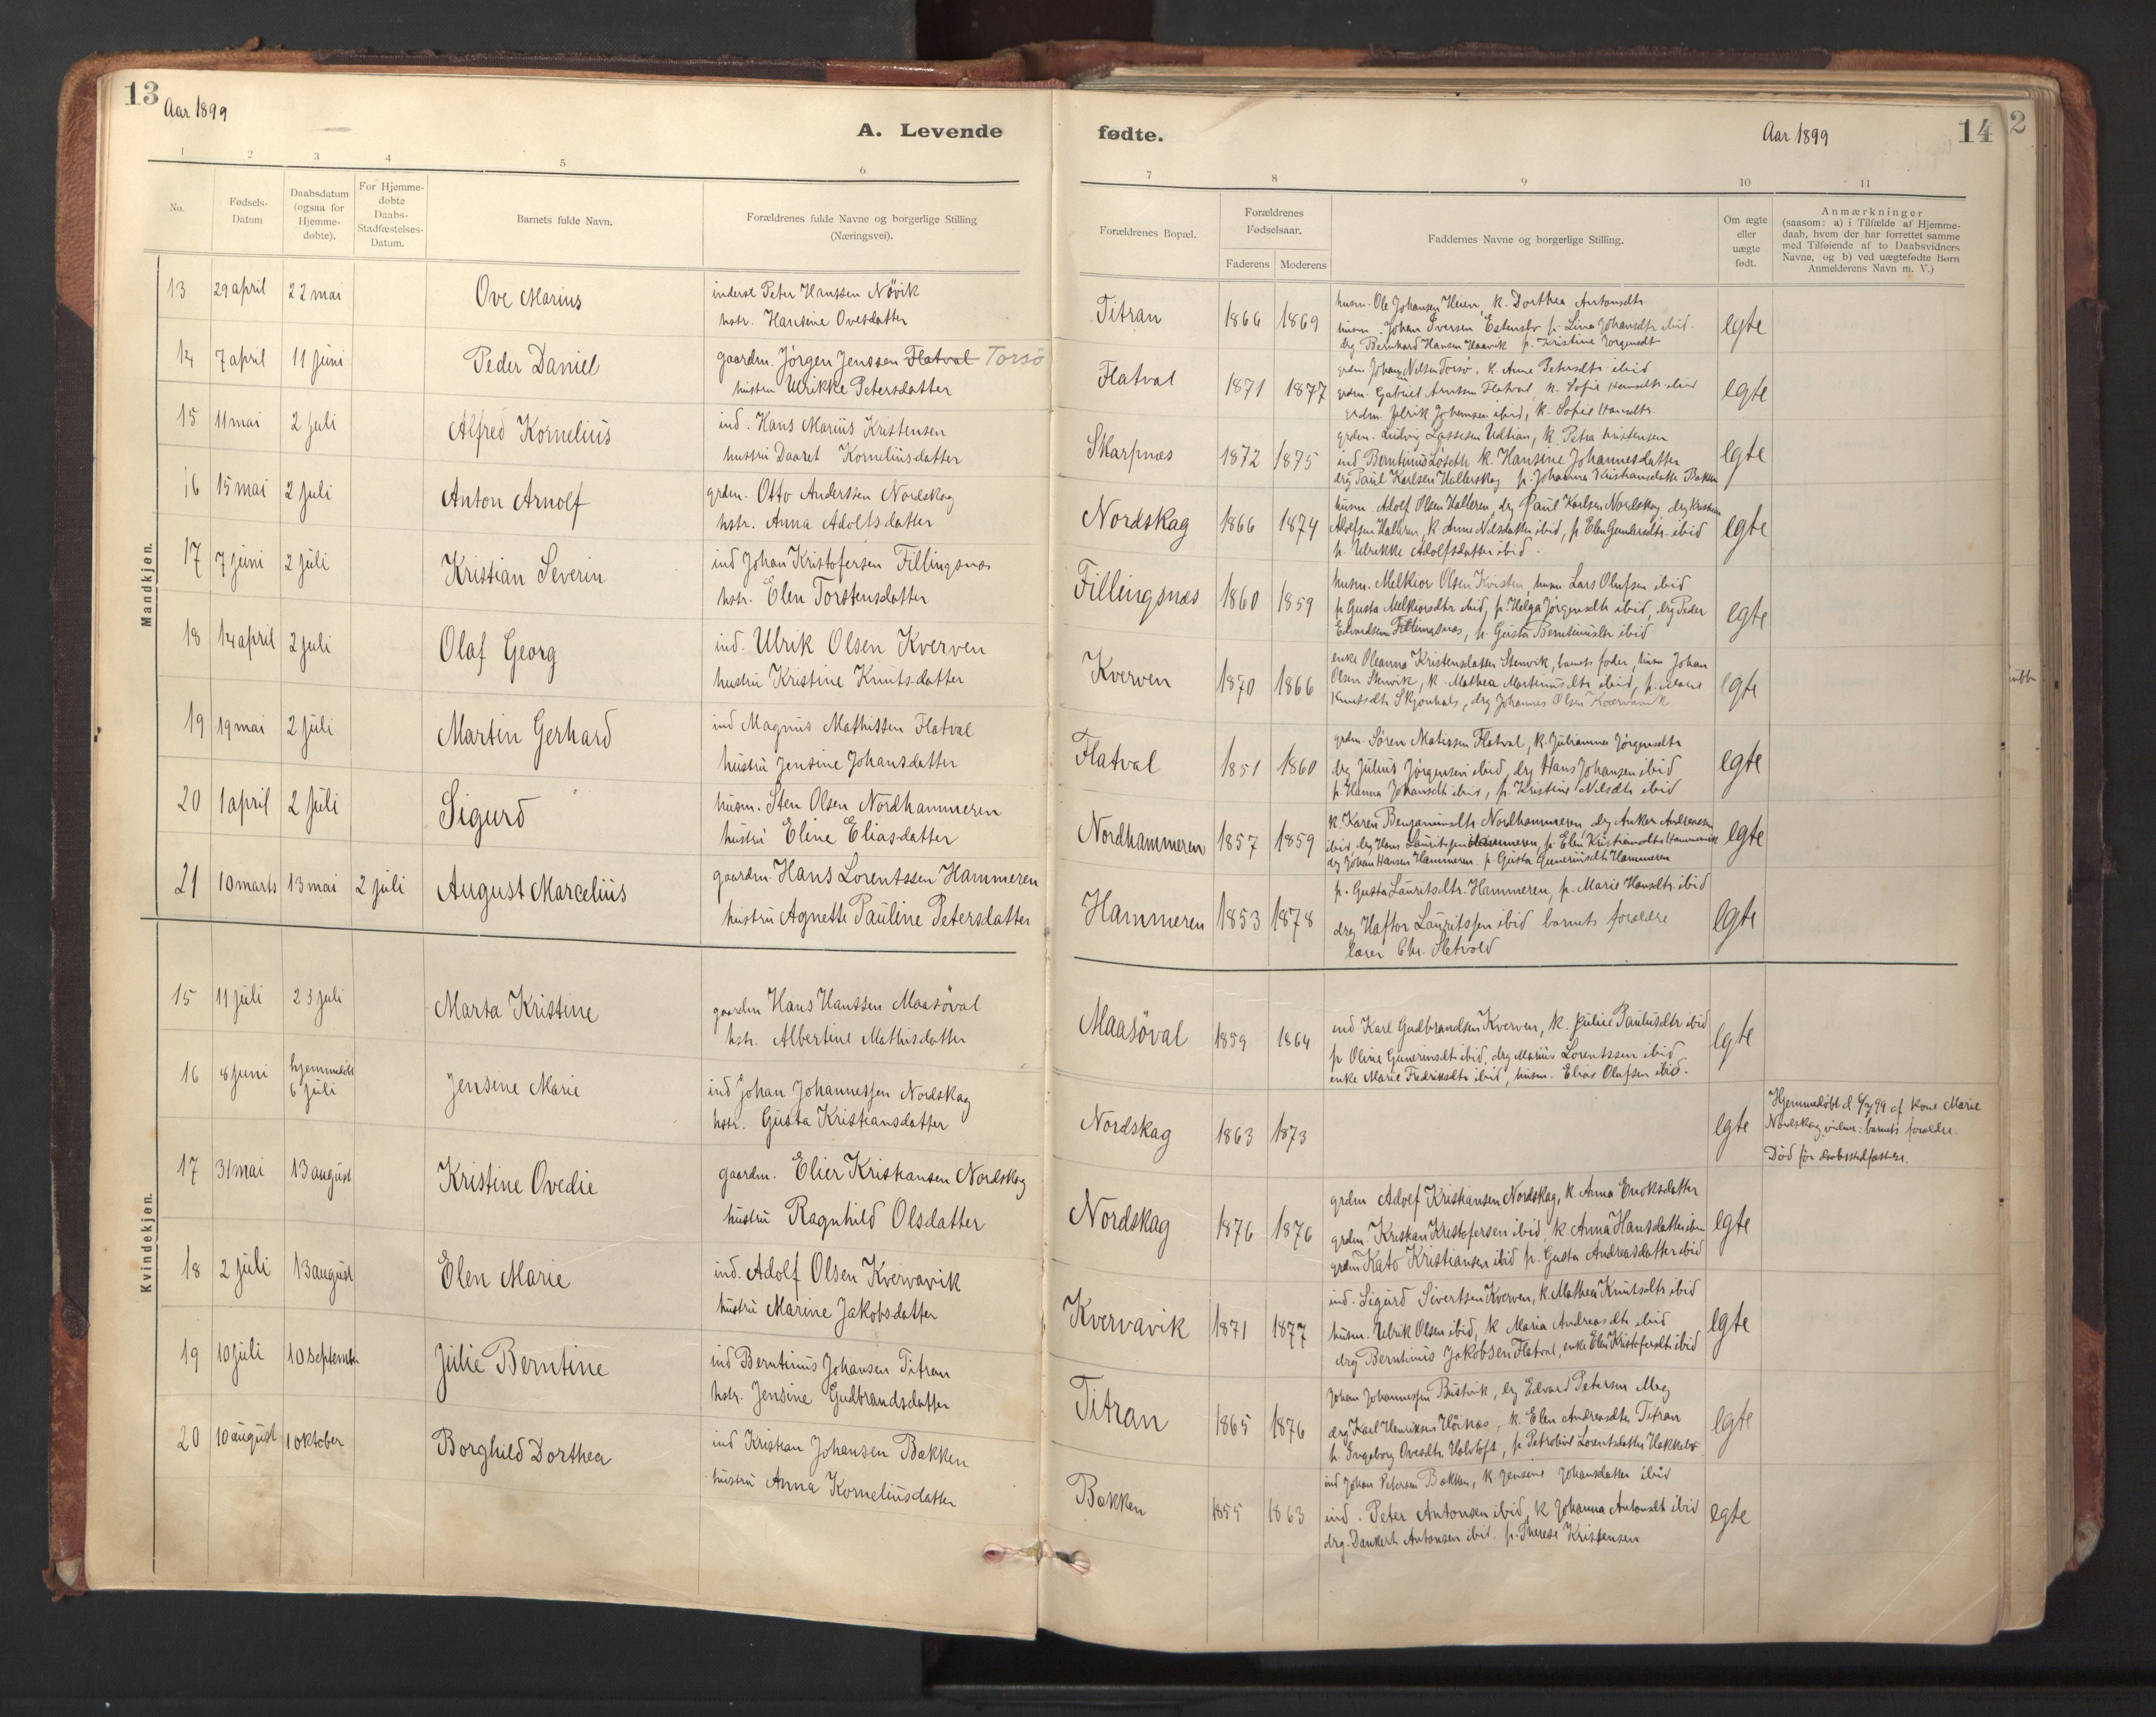 13
Aar 1899
A. Levende
1 2 3 4 5 6
No.
Fødsels-
Datum
Daabsdatum
(ogsaa for
Hjemme-
døbte).
For Hjemme-
døbte
Daabs-
Stadfæstelses-
Datum.
Barnets fulde Navn.
Forældrenes fulde Navne og borgerlige Stilling
(Næringsvei).
Mandkjøn.
13 29 april 22 mai Ove Marius inderst Peter Hanssen Növik
hstr. Hansine Ovesdatter
14 7 april 11 juni Peder Daniel gaardm. Jörgen Jenssen Flatval Torsö
hustru Ulrikke Petersdatter
15 11 mai 2 juli Alfred Kornelius ind. Hans Marius Kristensen
hustru Daaret Korneliusdatter
16 15 mai 2 juli Anton Arnolf grdm. Otto Anderssen Nordskag
hstr. Anna Adolfsdatter
17 7 juni 2 juli Kristian Severin ind Johan Kristofersen Fillingsnæs
hstr. Elen Torstensdatter
18 14 april 2 juli Olaf Georg ind. Ulrik Olsen Kverven
hustru Kristine Knutsdatter
19 19 mai 2 juli Martin Gerhard ind Magnus Mathissen Flatval
hustru Jensine Johansdatter
20 1 april 2 juli Sigurd husm. Sten Olsen Nordhammeren
hustru Eline Eliasdatter
21 10 marts 13 mai 2 juli August Marcelius gaardm. Hans Lorentssen Hammeren
hustru Agnette Pauline Petersdatter
Kvindekjøn.
15 11 juli 23 juli Marta Kristine gaardm Hans Hanssen Maasöval
hstr. Albertine Mathisdatter
16 8 juni hjemmedöbt
6 juli Jensine Marie ind Johan Johannessen Nordskag
hstr. Gusta Kristiansdatter
17 31 mai 13 august Kristine Ovedie gaardm. Elier Kristiansen Nordskag
hustru Ragnhild Olsdatter
18 2 juli 13 august Elen Marie ind. Adolf Olsen Kvervavik
hustru Marine Jakobsdatter
19 10 juli 10 september Julie Berntine ind Berntinus Johansen Titran
hstr. Jensine Gudbrandsdatter
20 10 august 1 oktober Borghild Dorthea ind Kristian Johansen Bakken
hustru Anna Korneliusdatter
fødte.
Aar 1899
14
2
7 8 9 10 11
Forældrenes Bopæl.
Forældrenes
Fødselsaar.
Faderens Moderens
Faddernes Navne og borgerlige Stilling.
Om ægte
eller
uægte
født.
Anmærkninger
(saasom: a) i Tilfælde af Hjemme-
daab, hvem der har forrettet samme
med Tilføiende af to Daabsvidners
Navne, og b) ved uægtefødte Børn
Anmelderens Navn m. V.)
Titran 1866 1869 husm. Ole Johansen Heien, k. Dorthea Antonsdtr
husm. Johan Iversen p. Lina Johansdtr ibid.
drg Bernhard Hansen p. Kristine Jörgensdt
egte
Flatval 1871 1877 grdm Johan Nilsen Torsö, k. Anne Petersdtr ibid
grdm. Gabriel Arntsen Flatval, k. Sofie Hansdtr ibid
grdm. Ulrik Johansen ibid, k. Sofie Hansdtr.
egte
Skarpnæs 1872 1875 grdm. Ludvig Lassesen Udtian, k. Petra Kristensen
ind Berntinus Löseth k. Hansine Johannesdatter
drg Paul Karlsen p. Johanna Kristiansdatter Bakken
egte
Nordskag 1866 1874 husm. Adolf Olsen Valleren, drg Paul Karlsen Nordskag, drg Kristian
Adolfsen k. Anne Nilsdatter ibid, p. Elen Gundersdtr. ibid
p. Ulrikke Adolfsdatter ibid.
egte
Fillingsnæs 1860 1859 husm. Melkior Olsen Kvisten, husm. Lars Olufsen ibid
p Gusta Melkiorsdtr ibid, p. Helga Jörgensdtr ibid, drg Peder
Edvardsen Fillingsnæs, p. Gusta Berntinusdtr ibid
egte
Kverven 1870 1866 enke Oleanna Kristensdatter Stenvik, barnets fader, husm Johan
Olsen Stenvik, k. Mathea Martinusdtr ibid, p.
Knutsdtr Skjönhals, drg Johannes Olsen Kvervavik
egte
Flatval 1851 1860 grdm. Sören Matissen Flatval, k. Julianna Jörgensdtr
drg Julius Jörgensen ibid, drg Hans Johansen ibid
p. Hanna Johansdtr ibid, p. Kristine Nilsdtr ibid
egte
Nordhammeren 1857 1859 k. Karen Benjaminsdtr Nordhammeren, drg Anker Andreassen
ibid, drg Hans Lauritssen Hammeren, p. Elen Kristiansdtr Hammervik
drg Johan Hansen Hammeren. p. Gusta Guneriusdtr Hammeren
egte
Hammeren 1853 1878 p. Gusta Lauritsdtr. Hammeren, p. Marie Hansdtr. ibid
drg Haftor Lauritssen ibid barnets forældre
lærer Chr. Sletvold
egte
Maasöval 1859 1864 ind Karl Gudbrandsen Kverven, k. Julie Paulusdtr ibid
p Oline Guneriusdtr ibid, drg Marius Lorentssen ibid
enke Marie Fredriksdtr ibid, husm. Elias Olufsen ibid.
egte
Nordskag 1863 1873 egte
Hjemmedöbt d. 6/7 99 af kone Marie
Nordskag, vidner: barnets forældre.
Död för daabsstadfæstelse.
Nordskag 1876 1876 grdm Adolf Kristiansen Nordskag, k. Anna Enoksdatter
grdm. Kristian Kristofersen ibid, k Anna Hansdatter ibid
grdm Kato Kristiansen ibid p. Gusta Andreasdatter ibid
egte
Kvervavik 1871 1877 ind. Sigurd Sivertsen Kverven, k. Mathea Knutsdtr ibid
husm. Ulrik Olsen ibid, k Maria Andreasdtr ibid
drg Berntinus Jakobsen Flatval, enke Elen Kristofersdtr ibid
egte
Titran 1865 1876 Johan Johannessen Bustvik, drg Edvard Petersen Meg
drg Karl Henriksen Höinæs, k. Elen Andreasdtr Titran
p. Ingeborg Ovesdtr p Petrobine Lorentsdatter
egte
Bakken 1855 1863 ind Johan Petersen Bakken, k. Jensine Johansdatter ibid
ind. Peter Antonsen ibid, k Johanna Antonsdt ibid
drg. Dankert Antonsen ibid. p. Therese Kristensen
egte